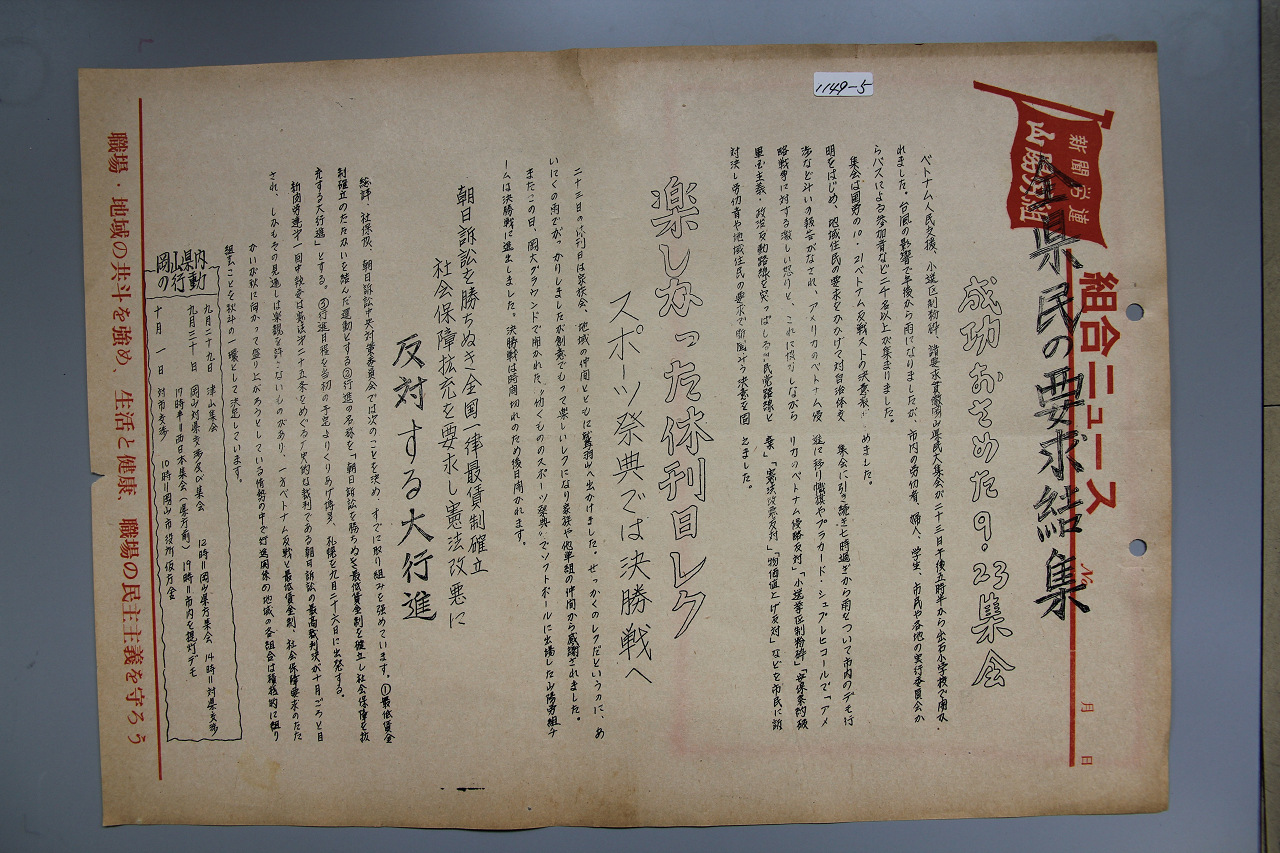 1149-5
新聞労連
山陽労組
組合ニュース
No.
月 日
全県民の要求結集
成功おさめた9.23集会
ベトナム人民支援、小選区制粉砕、諸要求貫徹岡山県民大集会が二十三日午後五時半から出石小学校で開か
れました。台風の影響で午後から雨になりましたが、市内の労仂者、婦人、学生、市民や各地の実行委員会か
らバスによる参加者など二千名以上が集まりました。
集会は国労の10・21ベトナム反戦ストの決意表
明をはじめ、地域住民の要求をかかげて対自治体交
渉など斗いの報告がなされ、アメリカのベトナム侵
略戦争に対する激しい怒りと、これに しながら
軍国主義・政治反動路線を突っぱしる 民党路線と
対決し労仂者や地域住民の要求で 決意を固
めました。
集会に引き続き七時過ぎから雨をついて市内のデモ行
進に移り職旗やプラカード・シュプレヒコールで「アメ
リカのベトナム侵略反対」「小選挙区制粉砕」「安保条約破
棄」「憲法改悪反対」「物価値上げ反対」などを市民に訴
えました。
楽しかった休刊日レク
スポーツ祭典では決勝戦へ
二十三日の休刊日は家族会、地域の仲間とともに鷲羽山へ出かけました。せっかくのレクだというのに、あ
いにくの雨でがっかりしましたが創意でもって楽しいレクになり家族や他単組の仲間から感謝されました。
またこの日、岡大グラウンドで開かれた〝仂くもののスポーツ祭典〟でソフトボールに出場した山陽労組チ
ームは決勝戦に進出しました。決勝戦は時間切れのため後日開かれます。
朝日訴訟を勝ちぬき全国一律最賃制確立
社会保障拡充を要求し憲法改悪に
反対する大行進
総評、社保協、朝日訴訟中央対策委員会では次のことを決め、すでに取り組みを強めています。①最低賃金
制確立のたたかいを結んだ運動とする②行進の名称を「朝日訴訟を勝ちぬき最低賃金制を確立し社会保障を拡
充する大行進」とする。③行進日程を当初の予定よりくりあげ 、札幌を九月二十六日に出発する。
新聞労連 一回中執委は憲法第二十五条をめぐる歴史的な裁判である朝日訴訟の最高裁判決が十月ごろと目
され、しかもその見通しは楽観を許さないものがあり、一方ベトナム反戦と最低賃金制、社会保障要求のたた
かいが秋に向かって盛り上がろうとしている情勢の中で行進関係の地域の各組合は積極的に取り
組むことを秋斗の一環として決定しています。
岡山県内
の行動
九月二十九日 津山集会
九月三十日 岡山対県交渉及び集会 12時＝岡山県庁集会 14時＝対県交渉
17時半＝西日本集会(県庁前) 19時＝市内を提灯デモ
十月 一日 対市交渉 10時＝岡山市役所仮庁舎
職場・地域の共斗を強め、生活と健康、職場の民主主義を守ろう